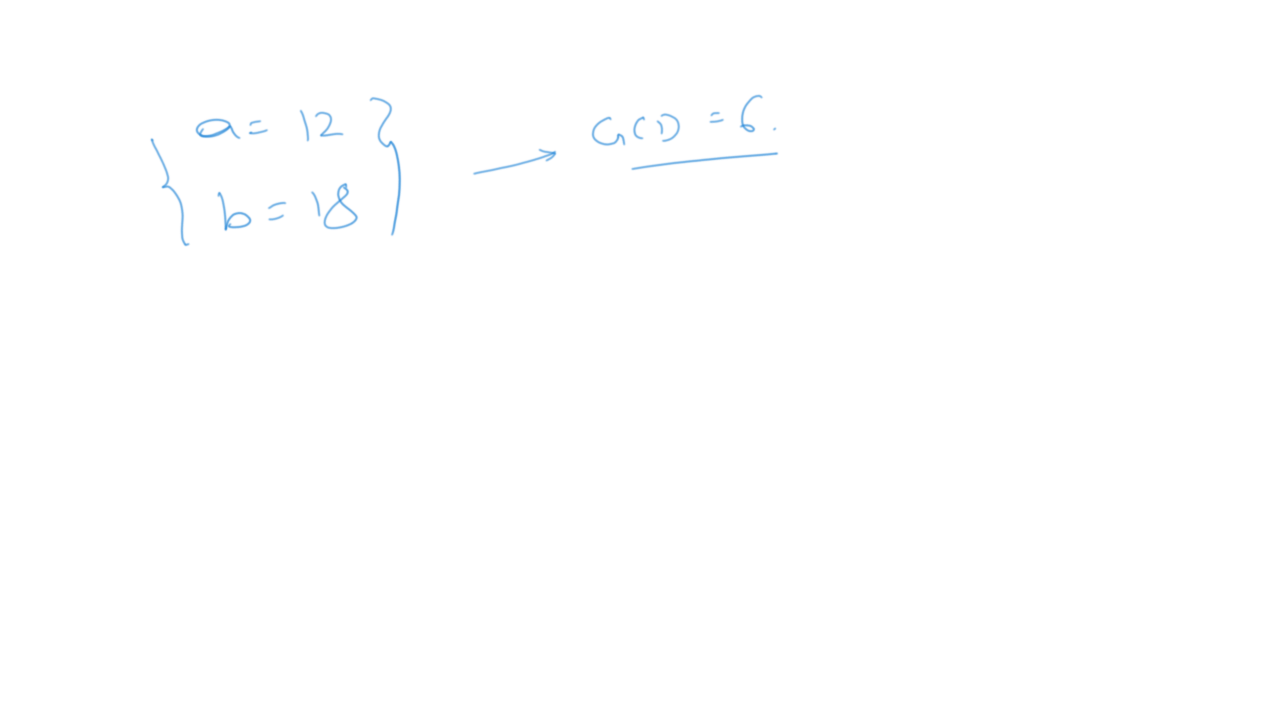 a = 12
b = 18
GCD = 6.